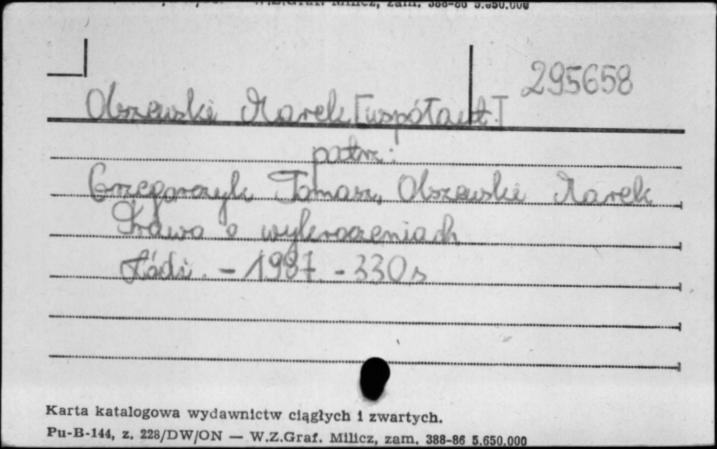 W.Z.Graf. Milicz, zam. 388-86 5.650.000
295658
Olszewski Marek [współaut.]
patrz:
Grzegorczyk Tomasz, Olszewski Marek
Prawo o wykroczeniach
Łódź. - 1987 - 330 s
Karta katalogowa wydawnictw ciągłych i zwartych.
Pu-B-144, z. 228/DW/ON — W.Z.Graf. Milicz, zam. 388-86 5.650.000